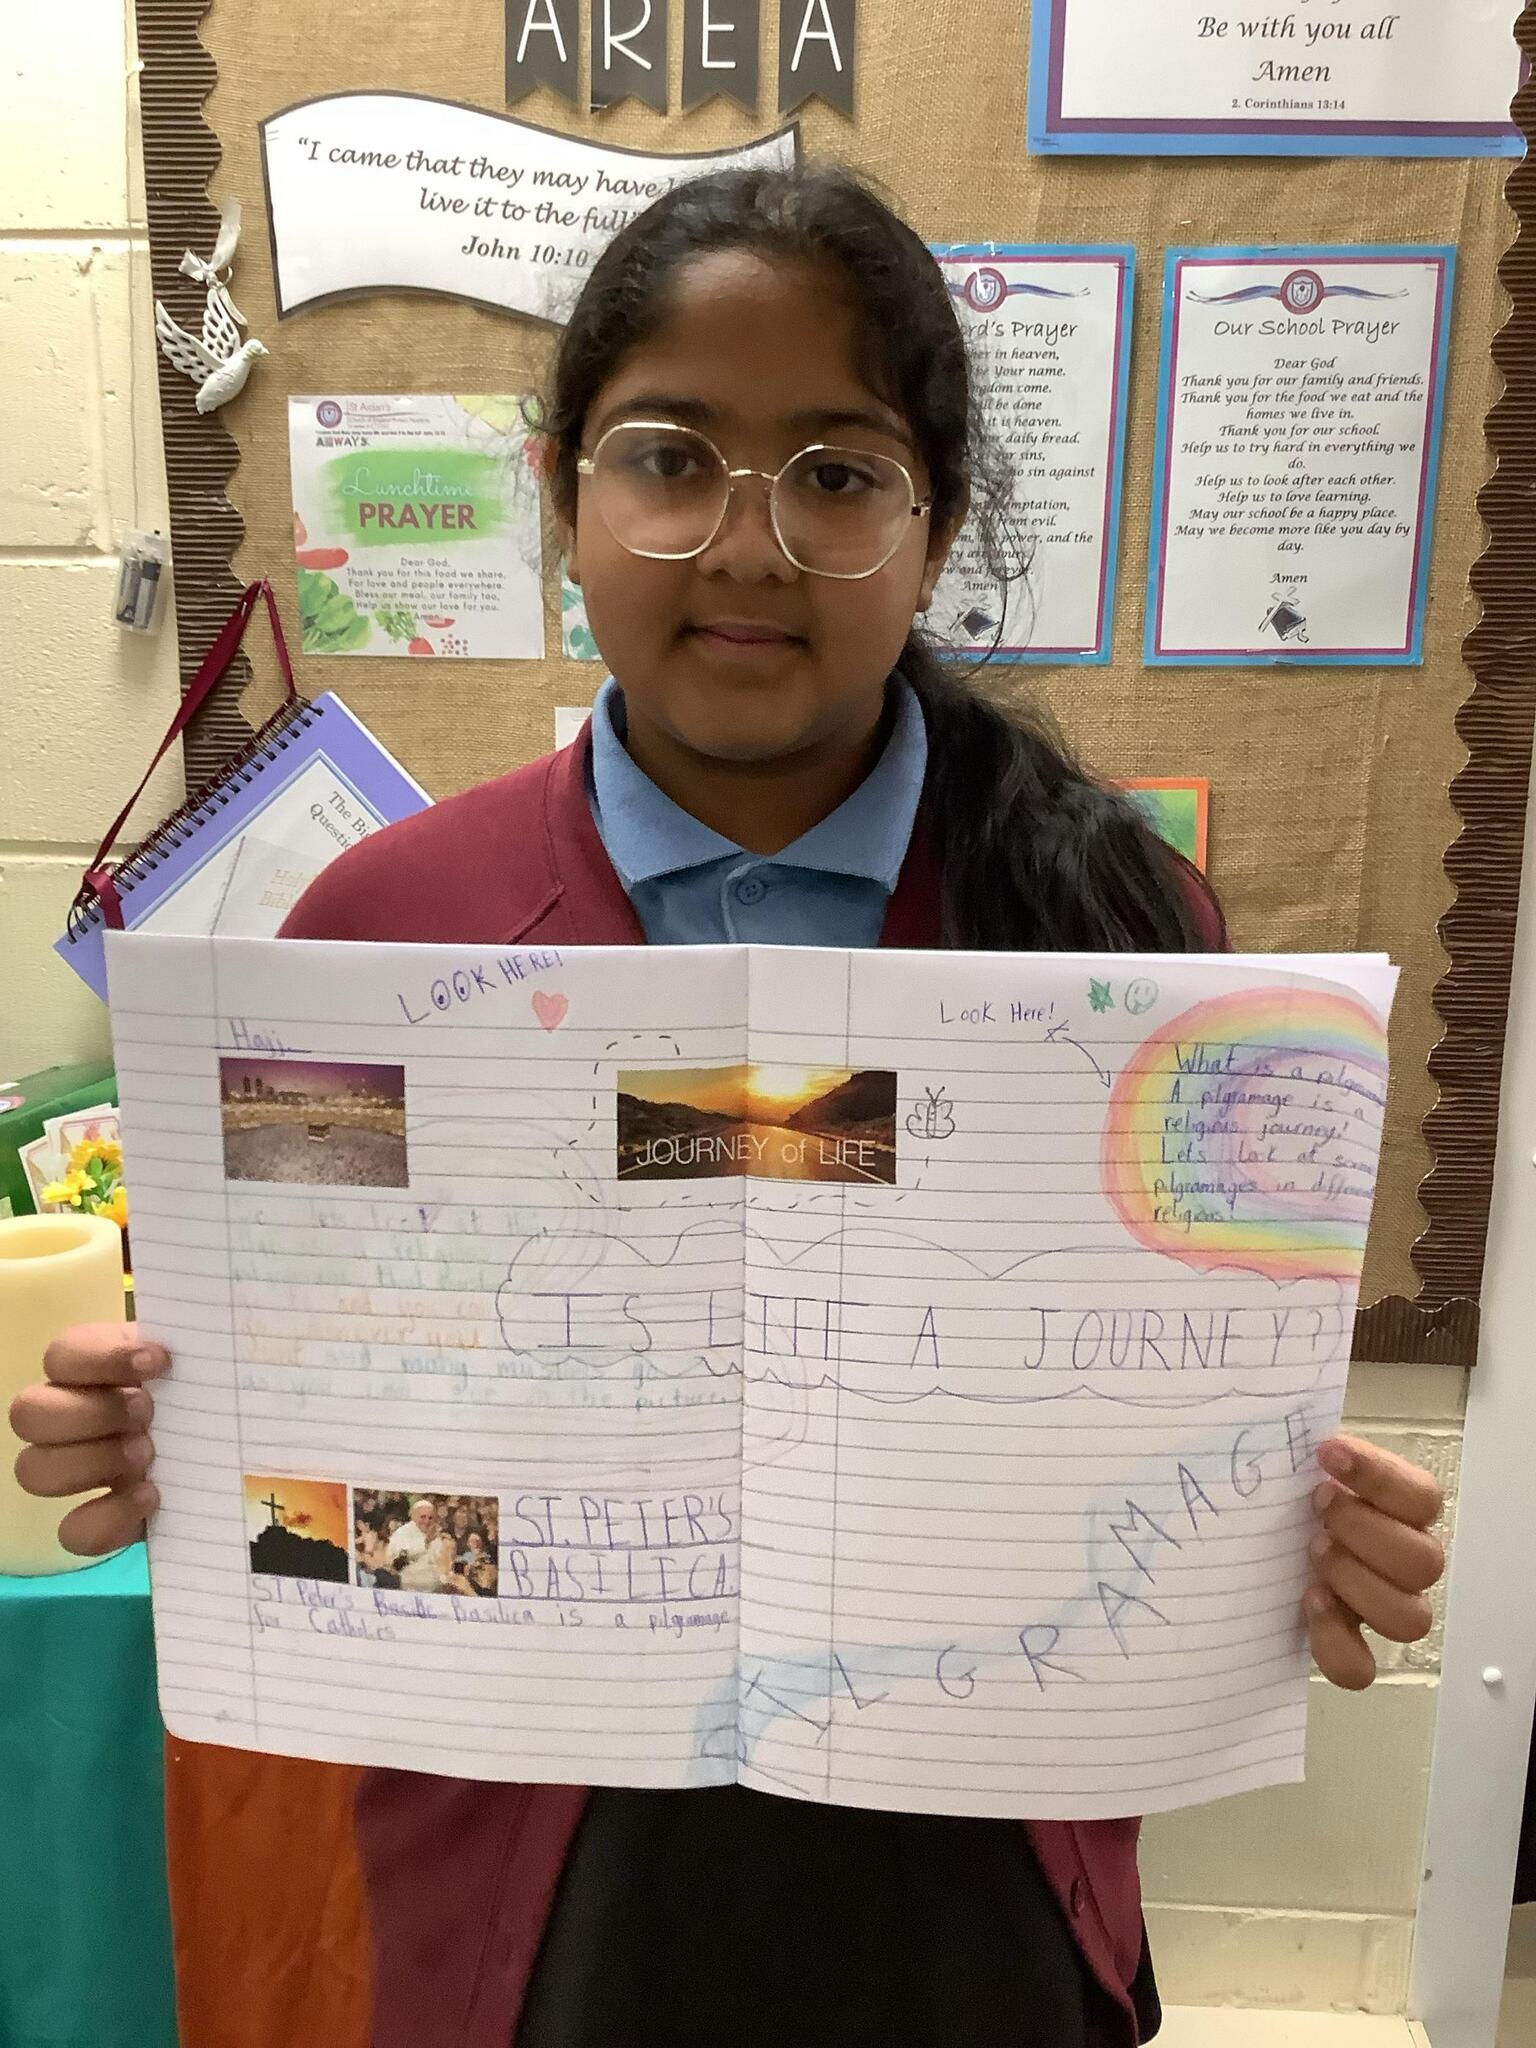 AREA
Be with you all
Amen
2. Corinthians 13:14
"I came that they may have
live it to the full"
John 10:10
St Aidan's
ALWAYS
Lunchtime
PRAYER
Dear God,
Thank you for this food we share,
For love and people everywhere.
Bless our meal, our family too,
Help us show our love for you.
Amen.
ord's Prayer
her in heaven,
be Your name.
ngdom come.
ill be done
it is heaven.
our daily bread.
our sins,
who sin against
emptation,
from evil.
power, and the
ry are yours
ow and forever.
Amen
Our School Prayer
Dear God
Thank you for our family and friends.
Thank you for the food we eat and the
homes we live in.
Thank you for our school.
Help us to try hard in everything we
do.
Help us to look after each other.
Help us to love learning.
May our school be a happy place.
May we become more like you day by
day.
Amen
The Big
Questio
Holy
Bible
LOOK HERE!
Hajj.
look at
religious
pilgrimage that
and you can
go whenever you
want and many muslims go
as you can see in the picture.
ST. PETER'S
BASILICA.
ST Peter's Basilica is a pilgramage
for Catholics
JOURNEY of LIFE
Look Here!
What is a pilgram
A pilgramage is a
religious journey!
Lets look at some
pilgramages in different
religions!
IS LIFE A JOURNEY?
PILGRAMAGE